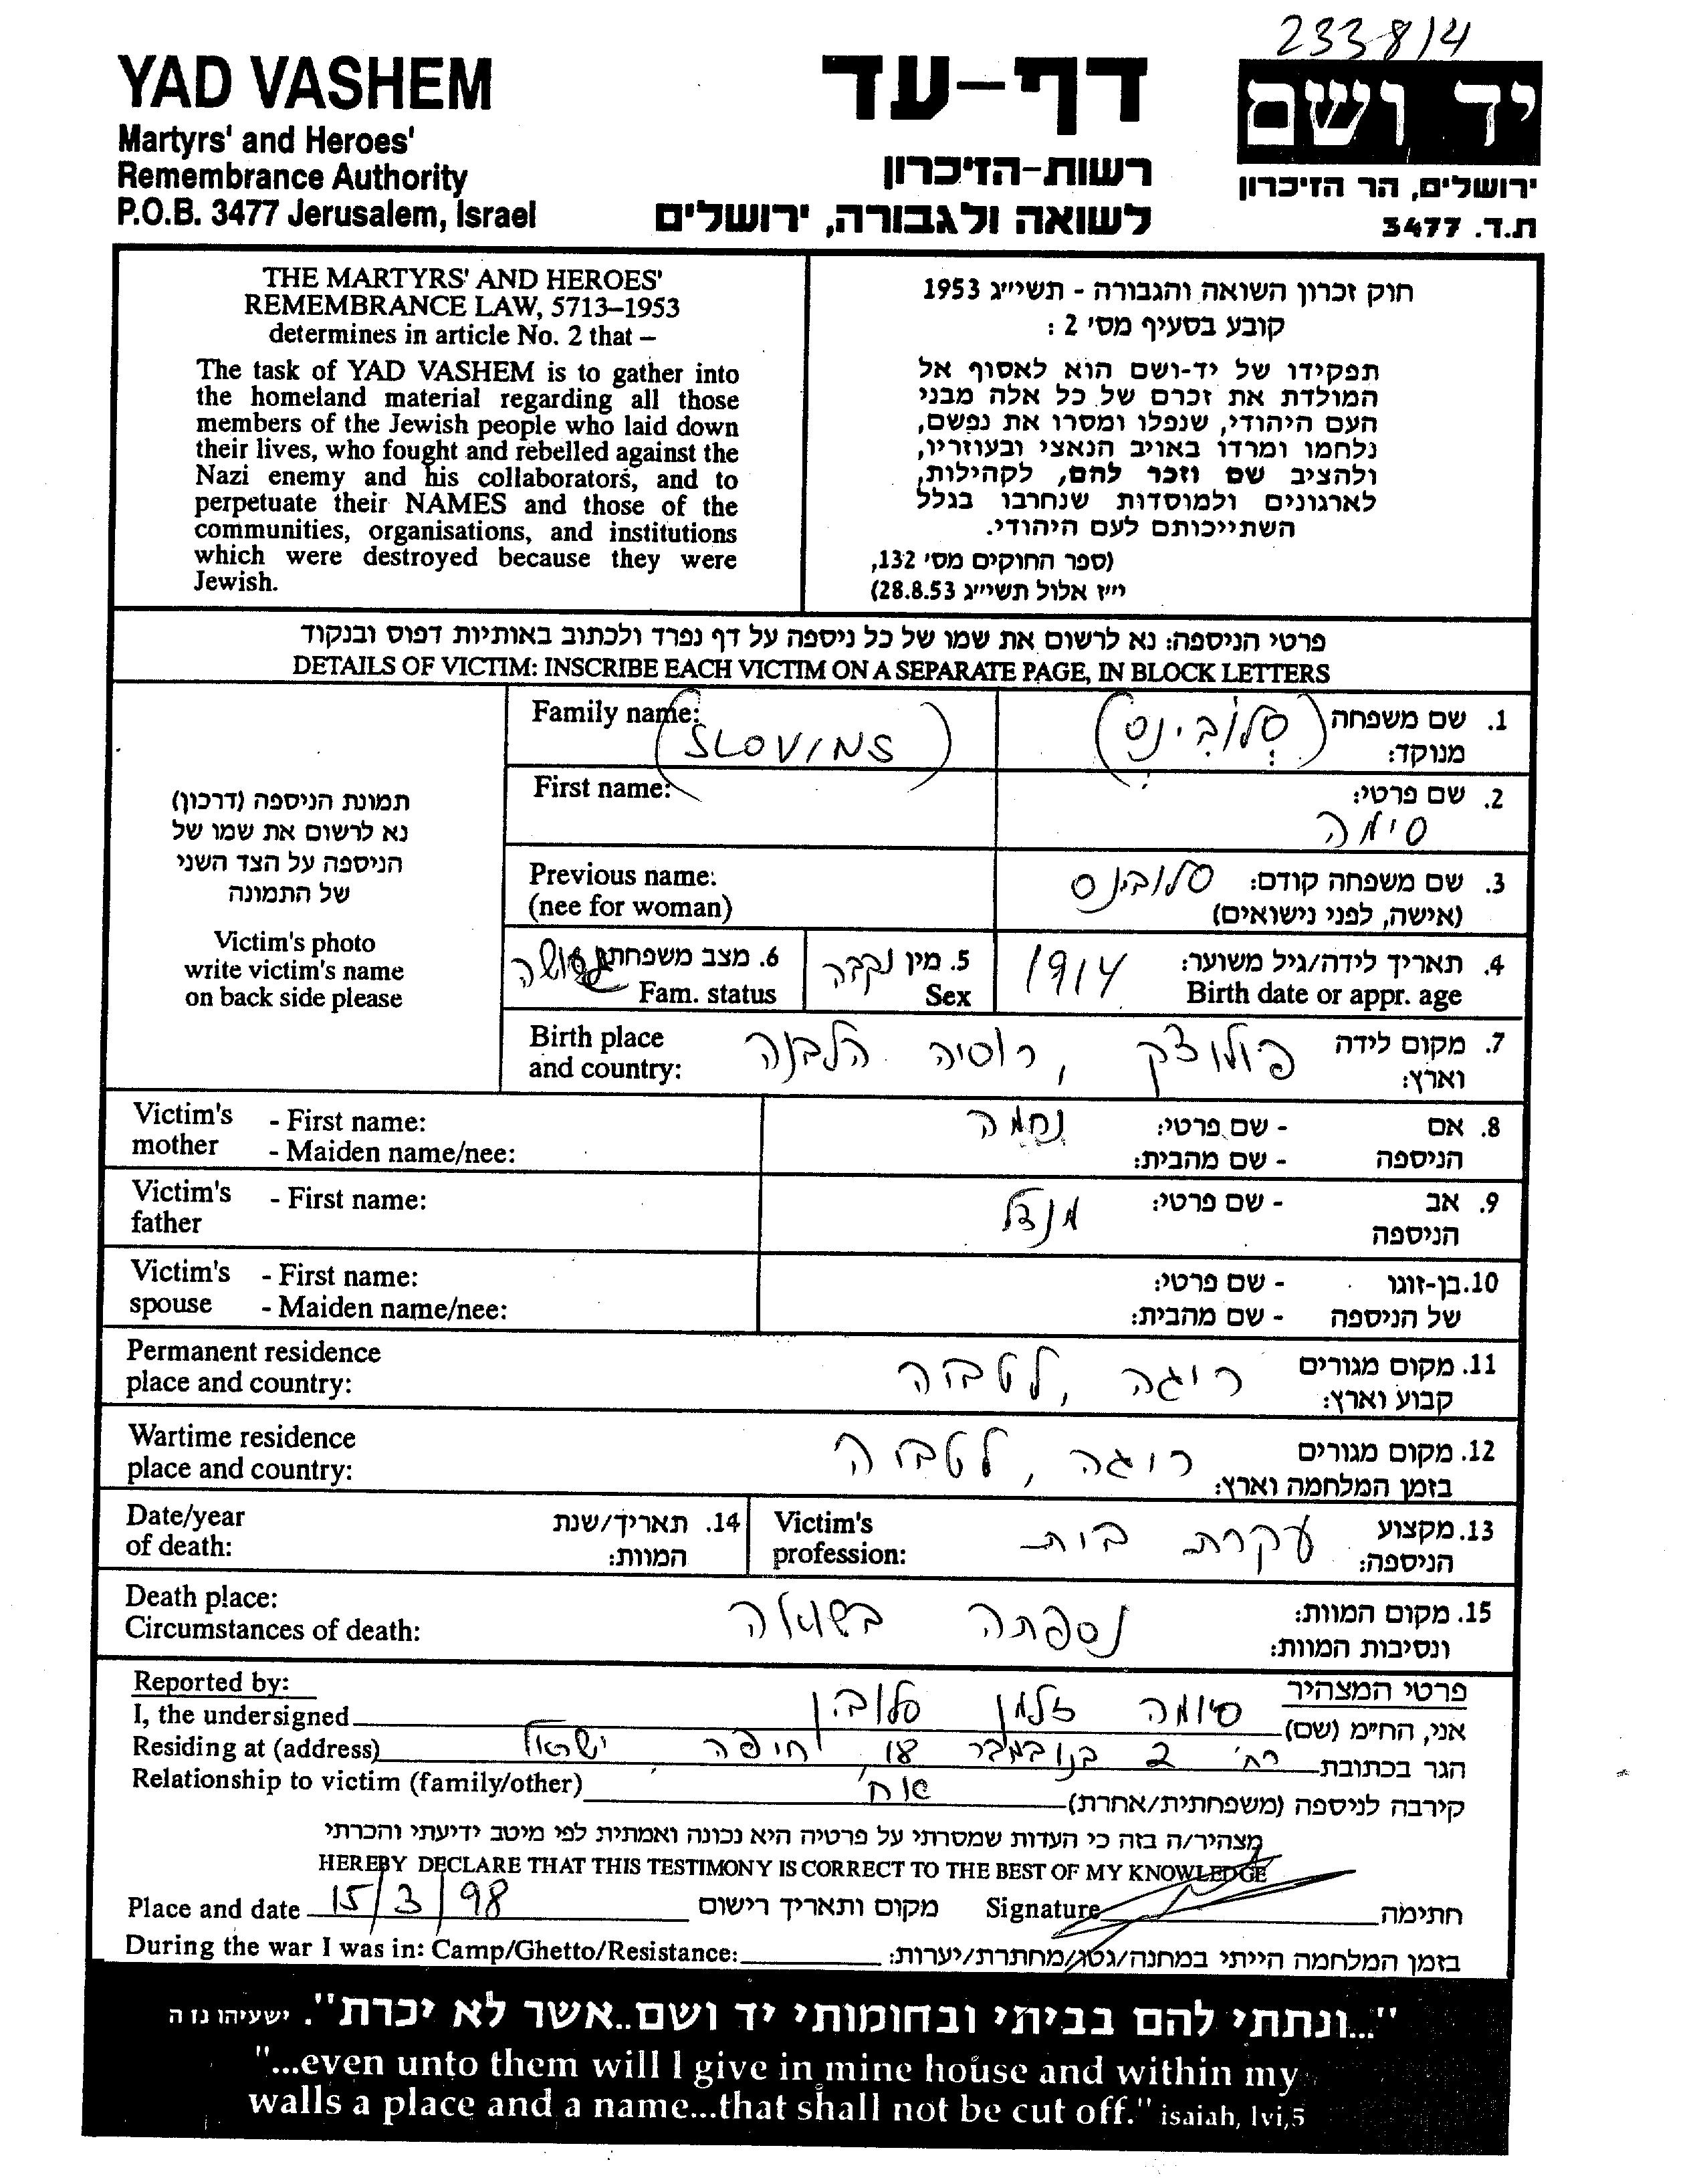 233814
YAD VASHEM
Martyrs' and Heroes'
Remembrance Authority
P.O.B. 3477 Jerusalem, Israel
דף-עד
רשות-הזיכרון
לשואה ולגבורה, ירושלים
יד ושם
ירושלים, הר הזיכרון
ת.ד. 3477
THE MARTYRS' AND HEROES'
REMEMBRANCE LAW, 5713–1953
determines in article No. 2 that –
The task of YAD VASHEM is to gather into
the homeland material regarding all those
members of the Jewish people who laid down
their lives, who fought and rebelled against the
Nazi enemy and his collaborators, and to
perpetuate their NAMES and those of the
communities, organisations, and institutions
which were destroyed because they were
Jewish.
חוק זכרון השואה והגבורה - תשי״ג 1953
קובע בסעיף מס׳ 2 :
תפקידו של יד-ושם הוא לאסוף אל
המולדת את זכרם של כל אלה מבני
העם היהודי, שנפלו ומסרו את נפשם,
נלחמו ומרדו באויב הנאצי ובעוזריו,
ולהציב שם וזכר להם, לקהילות,
לארגונים ולמוסדות שנחרבו בגלל
השתייכותם לעם היהודי.
(ספר החוקים מס׳ 132,
י״ז אלול תשי״ג 28.8.53)
פרטי הניספה: נא לרשום את שמו של כל ניספה על דף נפרד ולכתוב באותיות דפוס ובנקוד
DETAILS OF VICTIM: INSCRIBE EACH VICTIM ON A SEPARATE PAGE, IN BLOCK LETTERS
תמונת הניספה (דרכון)
נא לרשום את שמו של
הניספה על הצד השני
של התמונה
Victim's photo
write victim's name
on back side please
Family name: (SLOVINS)
1. שם משפחה מנוקד: (סלובינס)
First name:
2. שם פרטי: סימה
Previous name:
(nee for woman)
3. שם משפחה קודם: סלובינס
(אישה, לפני נישואים)
4. תאריך לידה/גיל משוער: 1914
Birth date or appr. age
5. מין נקבה
Sex
6. מצב משפחתי
Fam. status
Birth place
and country:
7. מקום לידה וארץ: פולוצק, רוסיה הלבנה
Victim's mother - First name:
- Maiden name/nee:
8. אם הניספה - שם פרטי: נחמה
- שם מהבית:
Victim's father - First name:
9. אב הניספה - שם פרטי: מנדל
Victim's spouse - First name:
- Maiden name/nee:
10. בן-זוגו של הניספה - שם פרטי:
- שם מהבית:
Permanent residence
place and country:
11. מקום מגורים קבוע וארץ: ריגה, לטביה
Wartime residence
place and country:
12. מקום מגורים בזמן המלחמה וארץ: ריגה, לטביה
Date/year
of death:
14. תאריך/שנת המוות:
Victim's
profession:
13. מקצוע הניספה: עקרת בית
Death place:
Circumstances of death:
15. מקום המוות: ונסיבות המוות: נספתה בשואה
Reported by:
פרטי המצהיר
I, the undersigned סימה זלמן סלובין אני, הח״מ (שם)
Residing at (address) רח׳ 2 בנובמבר 18 חיפה, ישראל הגר בכתובת
Relationship to victim (family/other) אח קירבה לניספה (משפחתית/אחרת)
מצהיר/ה בזה כי העדות שמסרתי על פרטיה היא נכונה ואמתית לפי מיטב ידיעתי והכרתי
HEREBY DECLARE THAT THIS TESTIMONY IS CORRECT TO THE BEST OF MY KNOWLEDGE
Place and date 15/3/98 מקום ותאריך רישום Signature חתימה
During the war I was in: Camp/Ghetto/Resistance: בזמן המלחמה הייתי במחנה/גטו/מחתרת/יערות:
"...ונתתי להם בביתי ובחומותי יד ושם..אשר לא יכרת". ישעיהו נז ה
"...even unto them will I give in mine house and within my
walls a place and a name...that shall not be cut off." isaiah, lvi,5